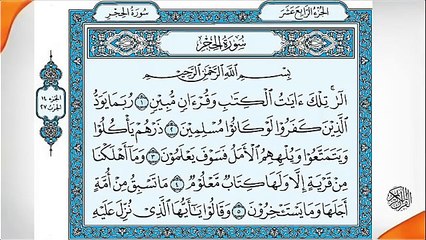 الجزء الرابع عشر
سورة الحجر
سورة الحجر
بِسْمِ اللَّهِ الرَّحْمَٰنِ الرَّحِيمِ
الٓر ۚ تِلْكَ ءَايَٰتُ ٱلْكِتَٰبِ وَقُرْءَانٍ مُّبِينٍ ١ رُّبَمَا يَوَدُّ
ٱلَّذِينَ كَفَرُوا۟ لَوْ كَانُوا۟ مُسْلِمِينَ ٢ ذَرْهُمْ يَأْكُلُوا۟
وَيَتَمَتَّعُوا۟ وَيُلْهِهِمُ ٱلْأَمَلُ ۖ فَسَوْفَ يَعْلَمُونَ ٣ وَمَآ أَهْلَكْنَا
مِن قَرْيَةٍ إِلَّا وَلَهَا كِتَابٌ مَّعْلُومٌ ٤ مَّا تَسْبِقُ مِنْ أُمَّةٍ
أَجَلَهَا وَمَا يَسْتَـْٔخِرُونَ ٥ وَقَالُوا۟ يَٰٓأَيُّهَا ٱلَّذِى نُزِّلَ عَلَيْهِ
الجزء ١٤
الحزب ٢٧